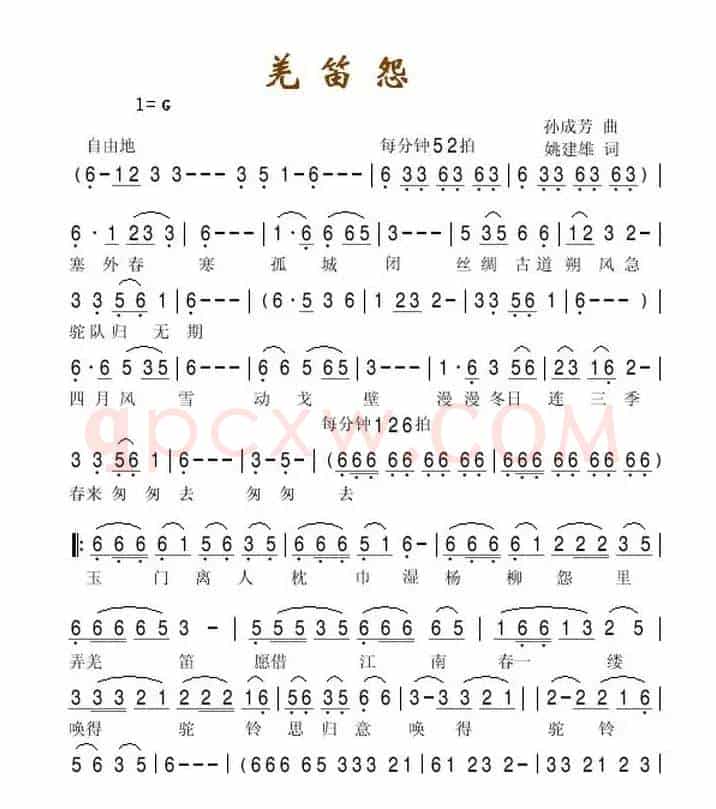 羌笛怨
1=G
孙成芳 曲
自由地 每分钟52拍 姚建雄 词
(6-123 3---3 5 1-6---|6 33 63 63|6 33 63 63)|
6·1 23 3|6---|1·6 6 65|3---|5 35 6 6|12 3 2-|
塞外春 寒 孤城 闭 丝绸古道朔风急
3 3 56 1|6---|(6·5 3 6|1 23 2-|33 56 1|6---)
驼队归 无期
6·6 5 35|6---|6 6 5 65|3---|1·6 3 56|23 16 2-|
四月风 雪 动戈 壁 漫漫冬日 连三季
每分钟126拍
3 3 56 1|6---|3-5-|(666 66 66 66|666 66 66 66)
春来匆匆去 匆匆去
‖:666 61 56 35|666 51 6-|666 61 222 35|
玉 门 离人 枕 巾湿 杨 柳 怨里
66665 3-|55535 666 65|16613 2-|
弄羌 笛 愿借 江 南 春一 缕
33321 222 16|56 35 66|3-3321|2-2216|
唤得 驼 铃思归意 唤得 驼铃
56 35|6---|(666 65 35 333 21|61 333 21|
gpcxw.COM